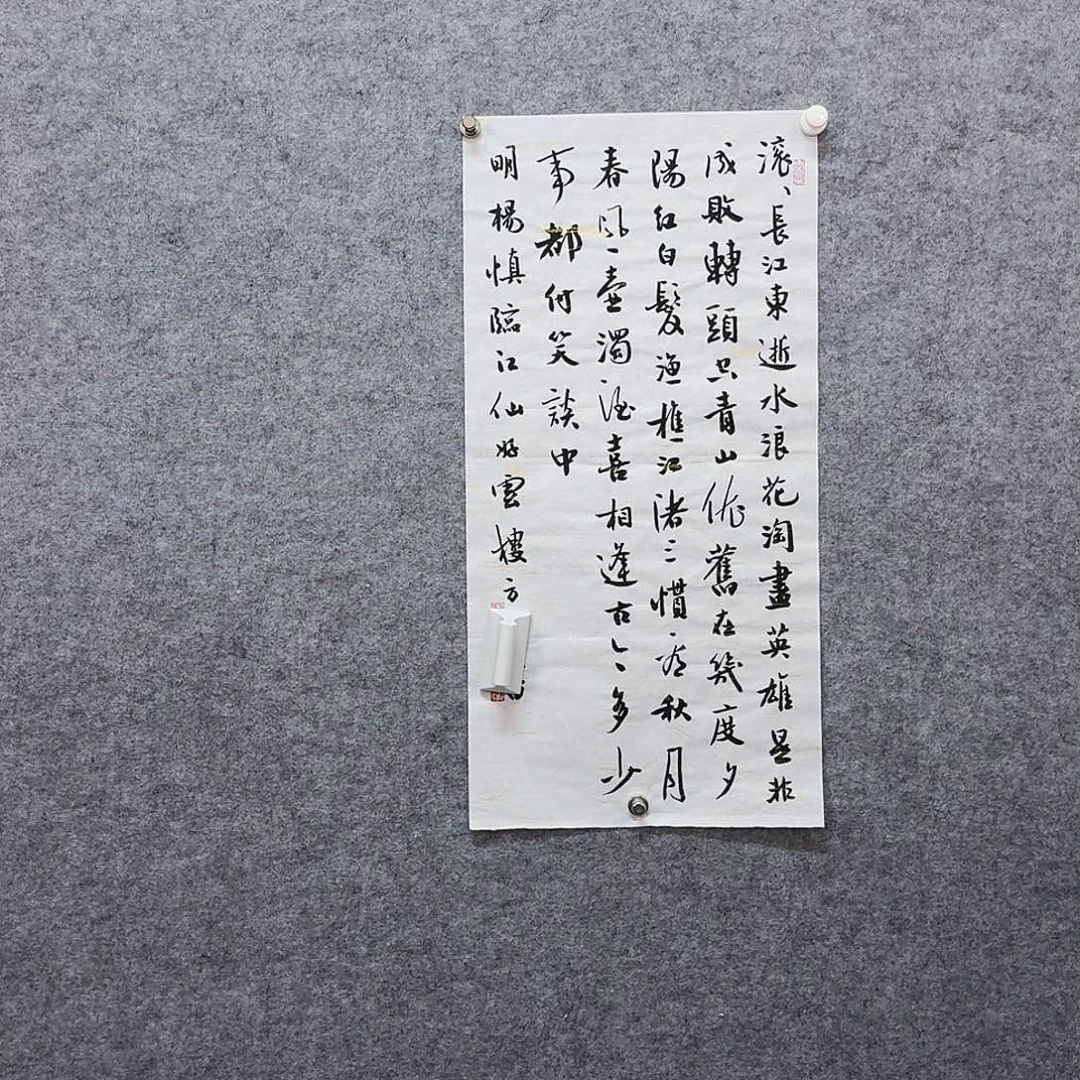 滚、長江東逝水浪花淘盡英雄是非
成敗轉頭空青山依舊在幾度夕
陽紅白髮漁樵江渚上慣看秋月
春風一壺濁酒喜相逢古今多少
事都付笑談中
明楊慎臨江仙 雲樓方